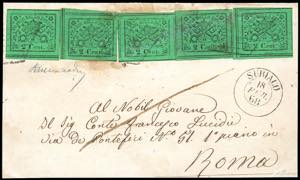 2 Cent. 2 Cent. 2 Cent. 2 Cent. 2 Cent.
SUBIACO
18
68
Al Nobil Giovane
Il Sig Conte Francesco Lucidi
Via De Pontefici No 51. 1° piano in
Roma